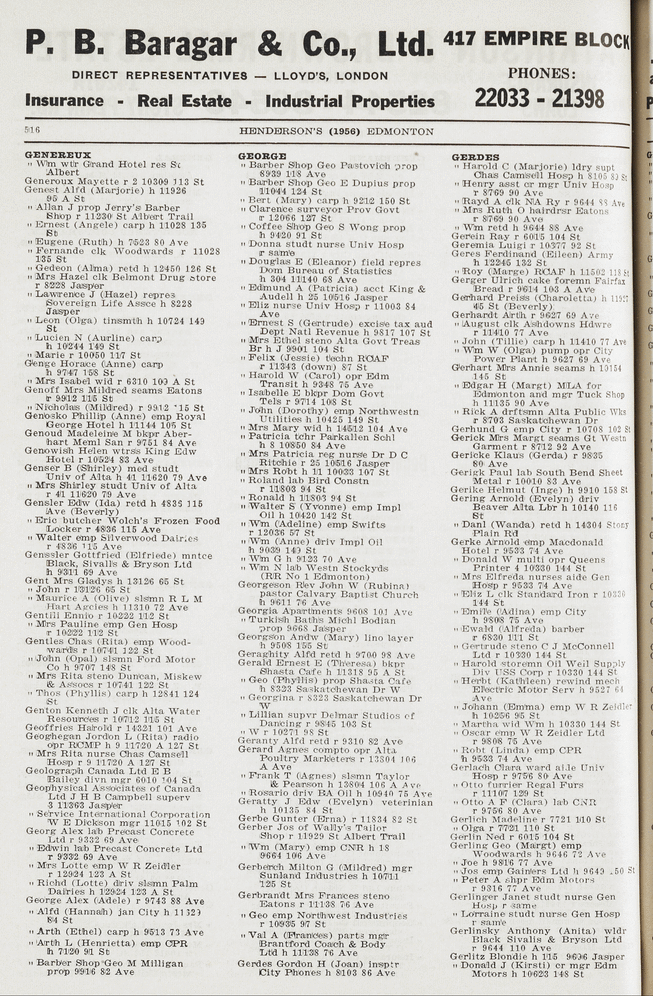 P. B. Baragar & Co., Ltd. 417 EMPIRE BLOCK
DIRECT REPRESENTATIVES — LLOYD'S, LONDON
PHONES:
Insurance - Real Estate - Industrial Properties
22033 - 21398
516
HENDERSON'S (1956) EDMONTON
GENEREUX
" Wm wtr Grand Hotel res St
Albert
Generoux Mayette r 2 10309 113 St
Genest Alfd (Marjorie) h 11926
95 A St
" Allan J prop Jerry's Barber
Shop r 11230 St Albert Trail
" Ernest (Angele) carp h 11028 135
St
" Eugene (Ruth) h 7523 80 Ave
" Fernande clk Woodwards r 11028
135 St
" Gedeon (Alma) retd h 12450 126 St
" Mrs Hazel clk Belmont Drug store
r 8228 Jasper
" Lawrence J (Hazel) repres
Sovereign Life Assce h 8228
Jasper
" Leon (Olga) tinsmith h 10724 149
St
" Lucien N (Aurline) carp
h 10244 149 St
" Marie r 10050 117 St
Genge Horace (Anne) carp
h 9747 158 St
" Mrs Isabel wid r 6310 109 A St
Genoff Mrs Mildred seams Eatons
r 9912 115 St
" Nicholas (Mildred) r 9912 115 St
Genosko Phillip (Anne) emp Royal
George Hotel h 11144 105 St
Genoud Madeleine M bkpr Aber-
hart Meml San r 9751 87 St
Genowish Helen wtrss King Edw
Hotel r 10524 83 Ave
Genser B (Shirley) med studt
Univ of Alta h 41 11620 79 Ave
" Mrs Shirley studt Univ of Alta
r 41 11620 79 Ave
Gensler Edw (Ida) retd h 4836 115
Ave (Beverly)
" Eric butcher Wolch's Frozen Food
Locker r 4836 115 Ave
" Walter emp Silverwood Dairies
r 4836 115 Ave
Genssler Gottfried (Elfriede) mntce
Black, Sivalls & Bryson Ltd
h 9311 69 Ave
Gent Mrs Gladys h 13126 65 St
" John r 13126 65 St
" Maurice A (Olive) slsmn R L M
Hart Agcies h 11310 72 Ave
Gentili Ennio r 10222 112 St
" Mrs Pauline emp Gen Hosp
r 10222 112 St
Gentles Chas (Rita) emp Wood-
wards r 10741 122 St
" John (Opal) slsmn Ford Motor
Co h 9707 148 St
" Mrs Rita steno Duncan, Miskew
& Assocs r 10741 122 St
" Thos (Phyllis) carp h 12841 124
St
Genton Kenneth J clk Alta Water
Resources r 10712 115 St
Geoffries Harold r 14321 101 Ave
Geoghegan Jordon L (Rita) radio
opr RCMP h 9 11720 A 127 St
" Mrs Rita nurse Chas Camsell
Hosp r 9 11720 A 127 St
Geolograph Canada Ltd E B
Bailey divn mgr 6010 104 St
Geophysical Associates of Canada
Ltd J H B Campbell superv
3 11363 Jasper
" Service International Corporation
W E Dickson mgr 11015 102 St
Georg Alex lab Precast Concrete
Ltd r 9332 69 Ave
" Edwin lab Precast Concrete Ltd
r 9332 69 Ave
" Mrs Lotte emp W R Zeidler
r 12924 123 A St
" Richd (Lotte) driv slsmn Palm
Dairies h 12924 123 A St
George Alex (Adele) r 9743 88 Ave
" Alfd (Hannah) jan City h 11329
84 St
" Arth (Ethel) carp h 9513 73 Ave
" Arth L (Henrietta) emp CPR
h 7120 91 St
" Barber Shop Geo M Milligan
prop 9916 82 Ave
GEORGE
" Barber Shop Geo Pastovich prop
8939 118 Ave
" Barber Shop Geo E Dupius prop
11044 124 St
" Bert (Mary) carp h 9212 150 St
" Clarence surveyor Prov Govt
r 12066 127 St
" Coffee Shop Geo S Wong prop
h 9420 91 St
" Donna studt nurse Univ Hosp
r same
" Douglas E (Eleanor) field repres
Dom Bureau of Statistics
h 304 11140 68 Ave
" Edmund A (Patricia) acct King &
Audell h 25 10516 Jasper
" Eliz nurse Univ Hosp r 11003 84
Ave
" Ernest S (Gertrude) excise tax aud
Dept Natl Revenue h 9817 107 St
" Mrs Ethel steno Alta Govt Treas
Br h J 9901 104 St
" Felix (Jessie) techn RCAF
r 11343 (down) 87 St
" Harold W (Carol) opr Edm
Transit h 9348 75 Ave
" Isabelle E bkpr Dom Govt
Tels r 9714 108 St
" John (Dorothy) emp Northwestn
Utilities h 10425 149 St
" Mrs Mary wid h 14512 104 Av
" Patricia tchr Parkallen Schl
h 8 10850 84 Ave
" Mrs Patricia reg nurse Dr D C
Ritchie r 25 10516 Jasper
" Mrs Robt h 11 10033 107 St
" Roland lab Bird Constn
r 11803 94 St
" Ronald h 11803 94 St
" Walter S (Yvonne) emp Impl
Oil h 10420 142 St
" Wm (Adeline) emp Swifts
r 12036 57 St
" Wm (Anne) driv Impl Oil
h 9039 149 St
" Wm G h 9123 70 Ave
" Wm N lab Westn Stockyds
(RR No 1 Edmonton)
Georgeson Rev John W (Rubina)
pastor Calvary Baptist Church
h 9611 76 Ave
Georgia Apartments 9608 101 Ave
" Turkish Baths Michl Bodian
prop 9668 Jasper
Georgson Andw (Mary) lino layer
h 9508 155 St
Geraghity Alfd retd h 9700 98 Ave
Gerald Ernest E (Theresa) bkpr
Shasta Cafe h 11318 95 A St
" Geo (Phyllis) prop Shasta Cafe
h 8323 Saskatchewan Dr W
" Georgina r 8323 Saskatchewan Dr
W
" Lillian supvr Delmar Studios of
Dancing r 9845 103 St
" W r 10271 98 St
Geranty Alfd retd r 9310 82 Ave
Gerard Agnes compto opr Alta
Poultry Marketers r 13304 106
A Ave
" Frank T (Agnes) slsmn Taylor
& Pearson h 13804 106 A Ave
" Rosario driv BA Oil h 10940 75 Ave
Geratty J Edw (Evelyn) veterinian
h 10135 84 St
Gerbe Gunter (Erna) r 11834 82 St
Gerber Jos of Wally's Tailor
Shop r 11929 St Albert Trail
" Wm (Mary) emp CNR h 18
9664 106 Ave
Gerberich Milton G (Mildred) mgr
Sunland Industries h 10711
125 St
Gerbrandt Mrs Frances steno
Eatons r 11138 76 Ave
" Geo emp Northwest Industries
r 10935 97 St
" Val A (Frances) parts mgr
Brantford Coach & Body
Ltd h 11138 76 Ave
Gerdes Gordon H (Joan) insptr
City Phones h 8103 86 Ave
GERDES
" Harold C (Marjorie) ldry supt
Chas Camsell Hosp h 8105 89 St
" Henry asst or mgr Univ Hosp
r 8769 90 Ave
" Rayd A clk N A Ry r 9644 88 Ave
" Mrs Ruth O hairdrsr Eatons
r 8769 90 Ave
" Wm retd h 9644 88 Ave
Gerein Ray r 6015 104 St
Geremia Luigi r 10377 92 St
Geres Ferdinand (Eileen) Army
h 12245 132 St
" Roy (Marge) RCAF h 11502 118 St
Gerger Ulrich cake foremn Fairfax
Bread r 9614 103 A Ave
Gerhard Preiss (Charoletta) h 11527
45 St (Beverly)
Gerhardt Arth r 9627 69 Ave
" August clk Ashdowns Hdwre
r 11410 77 Ave
" John (Tillie) carp h 11410 77 Ave
" Wm W (Olga) pump opr City
Power Plant h 9627 69 Ave
Gerhart Mrs Annie seams h 10154
145 St
" Edgar H (Margt) MLA for
Edmonton and mgr Tuck Shop
h 11135 90 Ave
" Rick A drftsmn Alta Public Wks
r 8703 Saskatchewan Dr
Gerhund G emp City r 10708 102 St
Gerick Mrs Margt seams Gt Westn
Garment r 8712 92 Ave
Gericke Klaus (Gerda) r 9835
80 Ave
Gerick Paul lab South Bend Sheet
Metal r 10010 83 Ave
Gerike Helmut (Inge) h 9910 158 St
Gering Arnold (Evelyn) driv
Beaver Alta Lbr h 10140 116
St
" Danl (Wanda) retd h 14304 Stony
Plain Rd
Gerke Arnold emp Macdonald
Hotel r 9533 74 Ave
" Donald W multi opr Queens
Printer 4 10330 144 St
" Mrs Elfreda nurses aide Gen
Hosp r 9533 74 Ave
" Eliz L clk Standard Iron r 10330
144 St
" Emile (Adina) emp City
h 9808 75 Ave
" Ewald (Alfreda) barber
r 6830 111 St
" Gertrude steno C J McConnell
Ltd r 10330 144 St
" Harold storemn Oil Weil Supply
Div USS Corp r 10330 144 St
" Herbt (Kathleen) rewind mech
Electric Motor Serv h 9527 64
Ave
" Johann (Emma) emp W R Zeidler
h 10256 95 St
" Martha wid Wm h 10330 144 St
" Oscar emp W R Zeidler Ltd
r 9808 75 Ave
" Robt (Linda) emp CPR
h 9533 74 Ave
Gerlach Clara ward aide Univ
Hosp r 9756 80 Ave
" Otto furrier Regal Furs
r 11107 129 St
" Otto A F (Clara) lab CNR
r 9756 80 Ave
Gerlich Madeline r 7721 110 St
" Olga r 7721 110 St
Gerlin Ned r 6015 104 St
Gerling Geo (Margt) emp
Woodwards h 9646 72 Ave
" Joe h 9816 77 Ave
" Jos emp Gainers Ltd h 9649 150 St
" Peter A shpr Edm Motors
r 9316 77 Ave
Gerlinger Janet studt nurse Gen
Hosp r same
" Lorraine studt nurse Gen Hosp
r same
Gerlinsky Anthony (Anita) wldr
Black Sivalls & Bryson Ltd
r 9644 110 Ave
Gerlitz Blondie h 115 9606 Jasper
" Donald J (Kirsti) cr mgr Edm
Motors h 10623 148 St